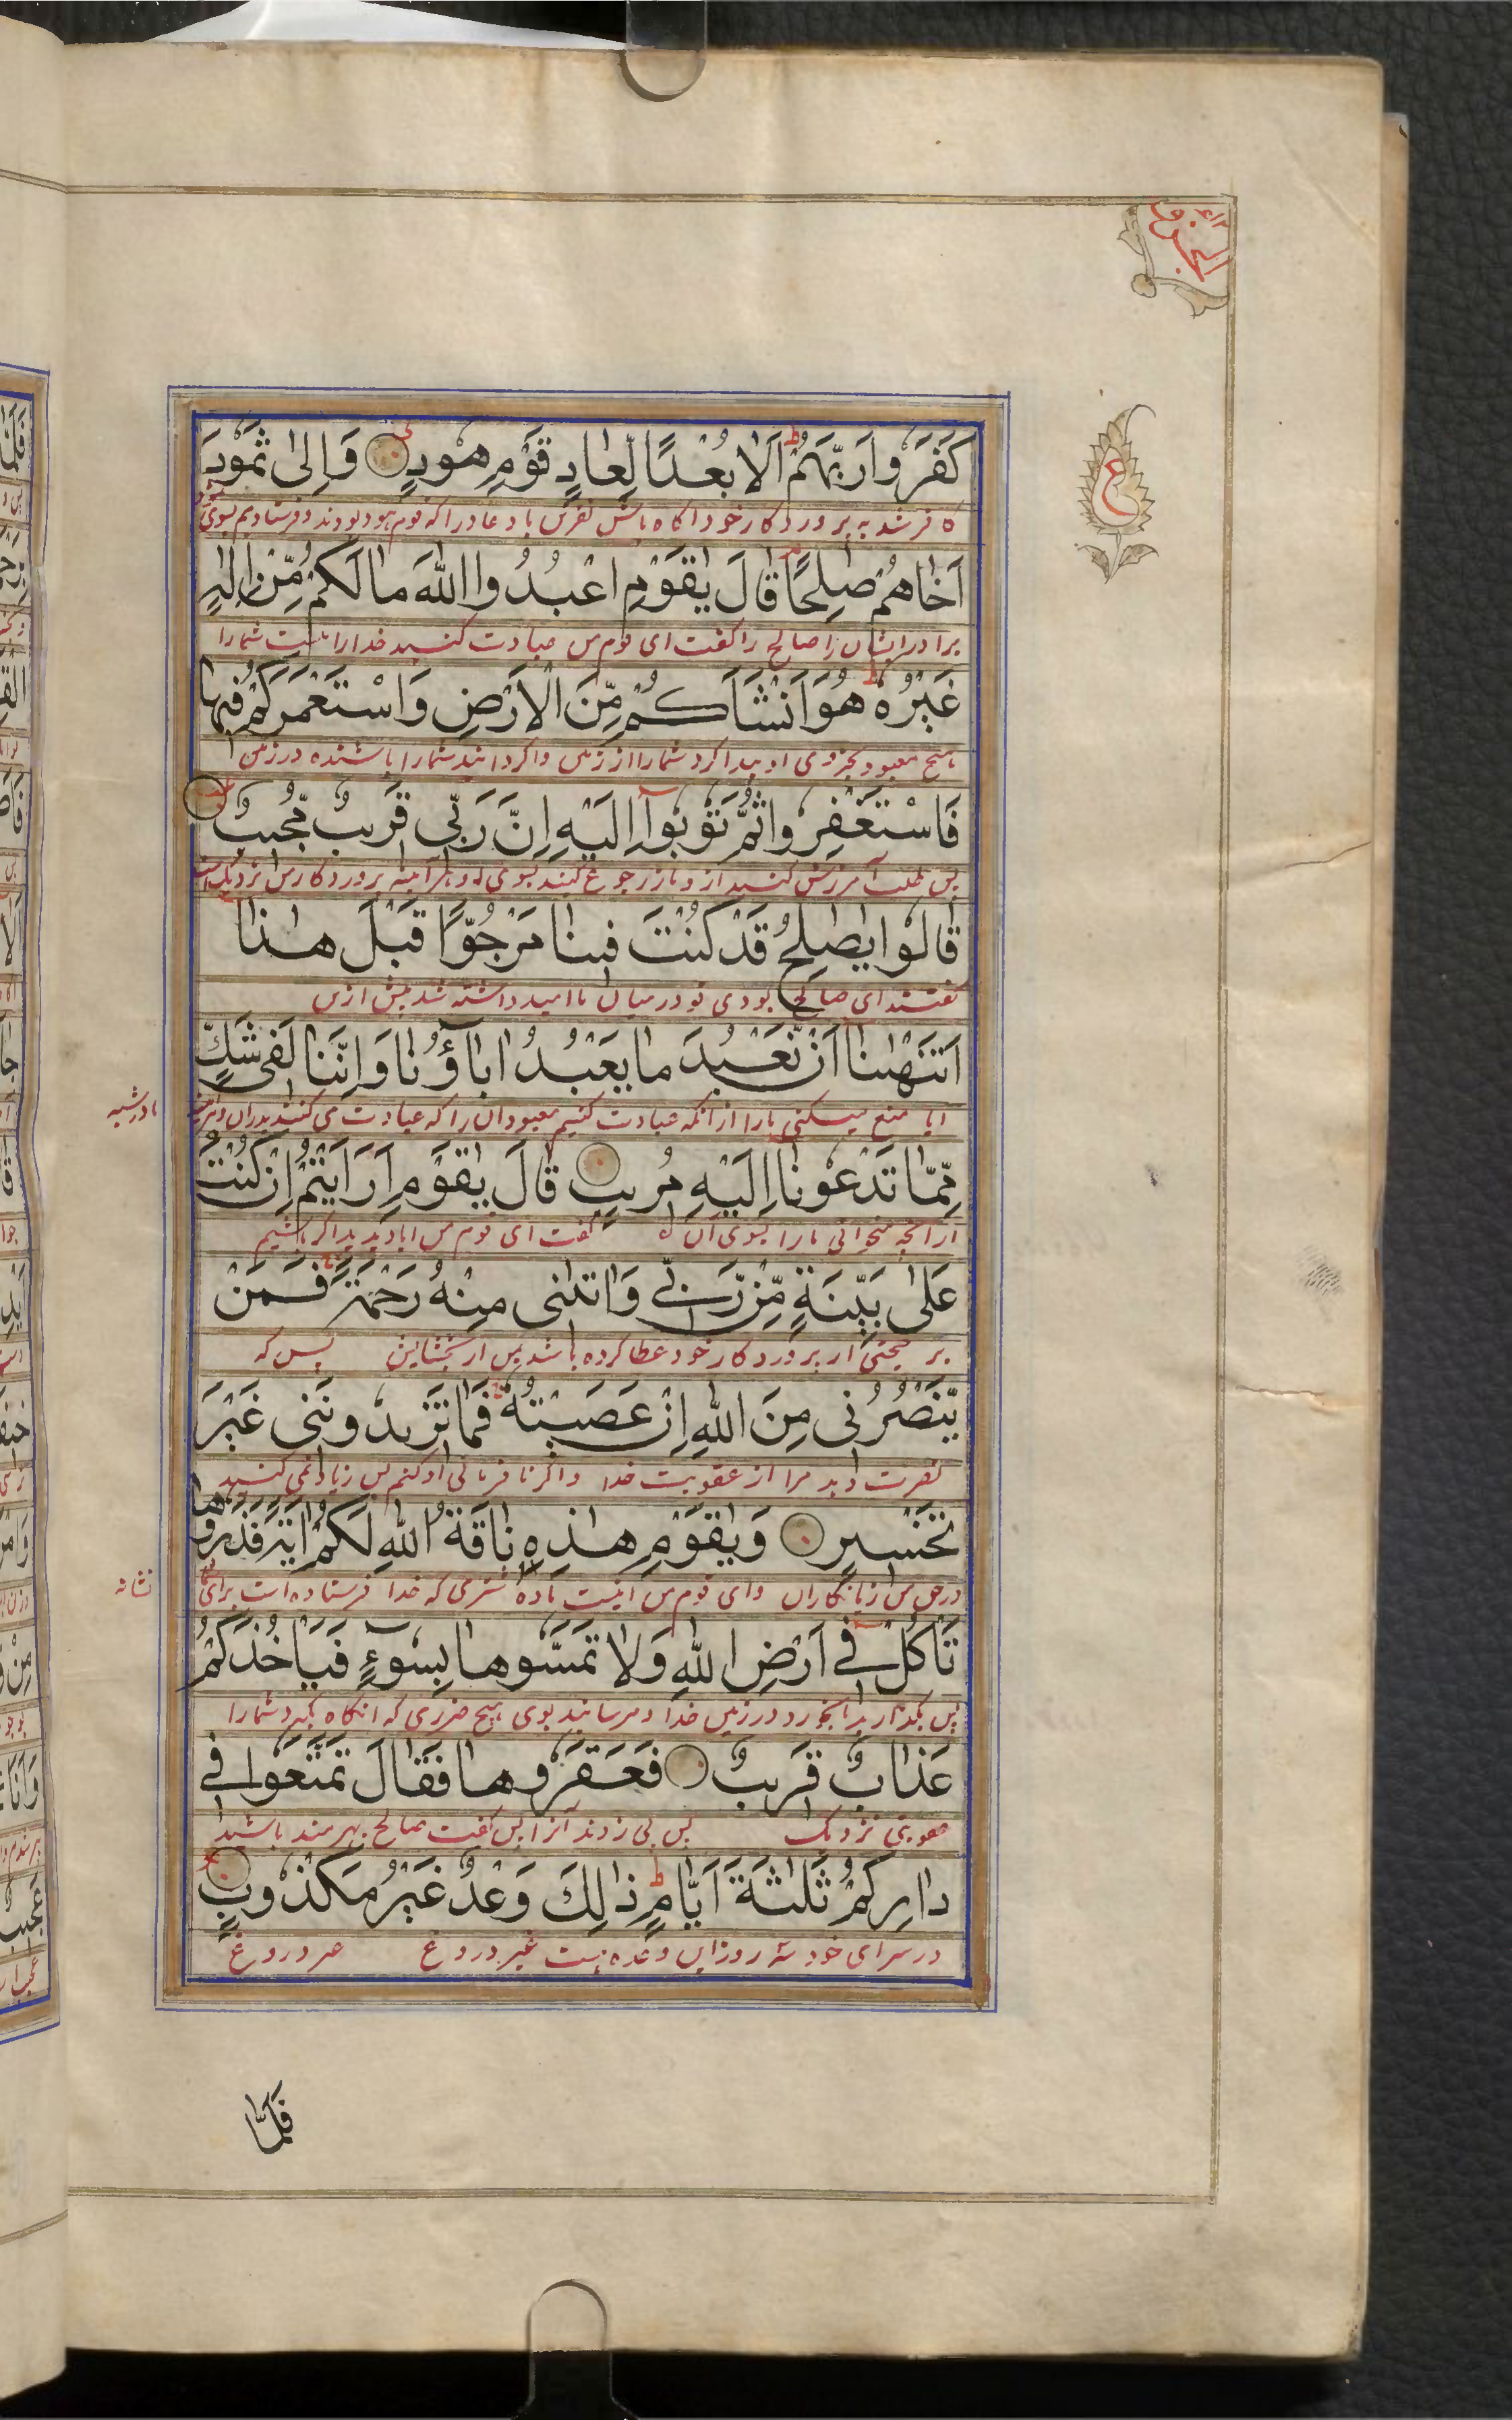 كَفَرُوا رَبَّهُمْ اَلَا بُعْدًا لِّعَادٍ قَوْمِ هُودٍ وَاِلٰى ثَمُودَ
کافر شدند به پروردگار خود آگاه باش نفرین باد عاد را که قوم هود بودند و فرستادیم بسوی
اَخَاهُمْ صٰلِحًا قَالَ يٰقَوْمِ اعْبُدُوا اللّٰهَ مَا لَكُمْ مِّنْ اِلٰهٍ
برادر ایشان را صالح را گفت ای قوم من عبادت کنید خدا را نیست شما را
غَيْرُهٗ هُوَ اَنْشَاَكُمْ مِّنَ الْاَرْضِ وَاسْتَعْمَرَكُمْ فِيهَا
هیچ معبود بجز وی او پیدا کرد شما را از زمین و گردانید شما را باشنده در زمین
فَاسْتَغْفِرُوا ثُمَّ تُوبُوا اِلَيْهِ اِنَّ رَبِّى قَرِيبٌ مُّجِيبٌ
پس طلب آمرزش کنید از و باز رجوع کنید بسوی او هر آینه پروردگار من نزدیک است
قَالُوا يٰصٰلِحُ قَدْ كُنْتَ فِينَا مَرْجُوًّا قَبْلَ هٰذَا
گفتند ای صالح بودی تو در میان ما امید داشته شد پیش ازین
اَتَنْهٰىنَا اَنْ نَّعْبُدَ مَا يَعْبُدُ اٰبَاؤُنَا وَاِنَّنَا لَفِى شَكٍّ
ایا منع میکنی ما را از آنکه عبادت کنیم معبودان را که عبادت می کنند پدران و هر آینه
ما در شبه
مِّمَّا تَدْعُونَا اِلَيْهِ مُرِيبٍ قَالَ يٰقَوْمِ اَرَاَيْتُمْ اِنْ كُنْتُ
از آنچه میخوانی ما را بسوی آن گفت ای قوم من ایا دیدید اگر باشم
عَلٰى بَيِّنَةٍ مِّنْ رَّبِّى وَاٰتٰنِى مِنْهُ رَحْمَةً فَمَنْ
بر حجتی از پروردگار خود عطا کرده باشد بمن از بخشایش پس که
يَّنْصُرُنِى مِنَ اللّٰهِ اِنْ عَصَيْتُهٗ فَمَا تَزِيدُونَنِى غَيْرَ
نصرت دهد مرا از عقوبت خدا و اگر نافرمانی او کنم پس زیاد نمی کنید
تَخْسِيرٍ وَيٰقَوْمِ هٰذِهٖ نَاقَةُ اللّٰهِ لَكُمْ اٰيَةً فَذَرُوهَا
در حق من زیانکاران و ای قوم من اینست ماده شتری که خدا فرستاده است برای
نشانه
تَاْكُلْ فِى اَرْضِ اللّٰهِ وَلَا تَمَسُّوهَا بِسُوءٍ فَيَاْخُذَكُمْ
پس بگذارید تا بخورد در زمین خدا و مرسانید بوی هیچ ضرری که آنگاه بگیرد شما را
عَذَابٌ قَرِيبٌ فَعَقَرُوهَا فَقَالَ تَمَتَّعُوا فِى
عقوبتی نزدیک پس پی زدند آنرا پس گفت صالح بهرمند باشید
دَارِكُمْ ثَلٰثَةَ اَيَّامٍ ذٰلِكَ وَعْدٌ غَيْرُ مَكْذُوبٍ
در سرای خود سه روز این وعده ایست غیر دروغ
فَلَمَّا